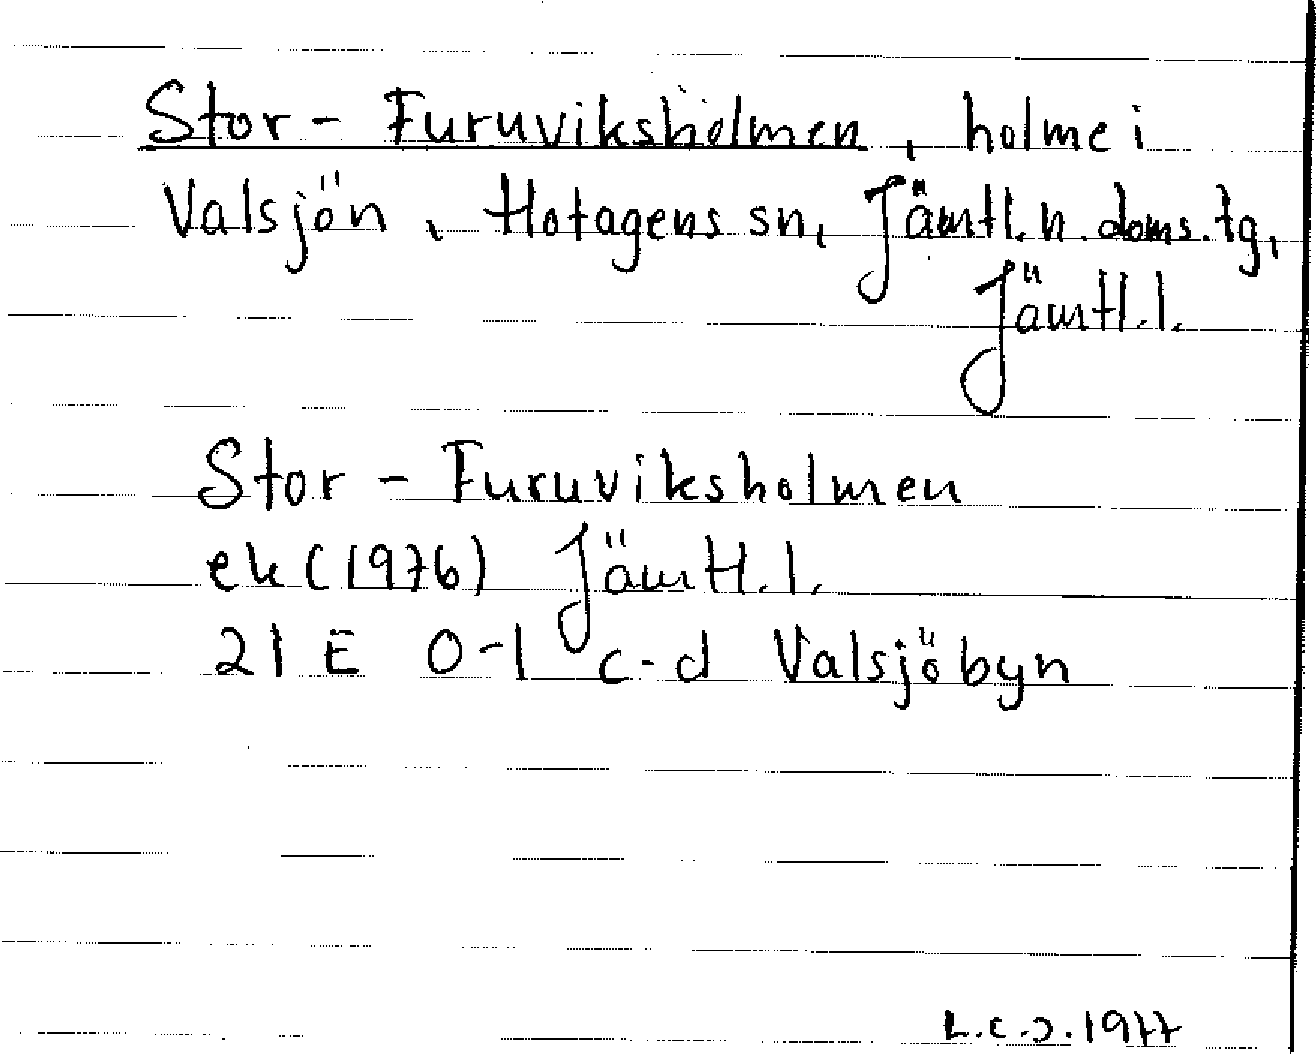 Stor-Furuviksholmen, holme i
Valsjön, Hotagens sn, Jämtl. n. doms. tg,
Jämtl. l.
Stor-Furuviksholmen
ek (1976) Jämtl. l.
21 E 0-1 c-d Valsjöbyn
L.C.J. 1977